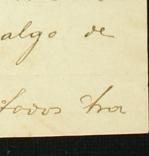 algo de
todos tra